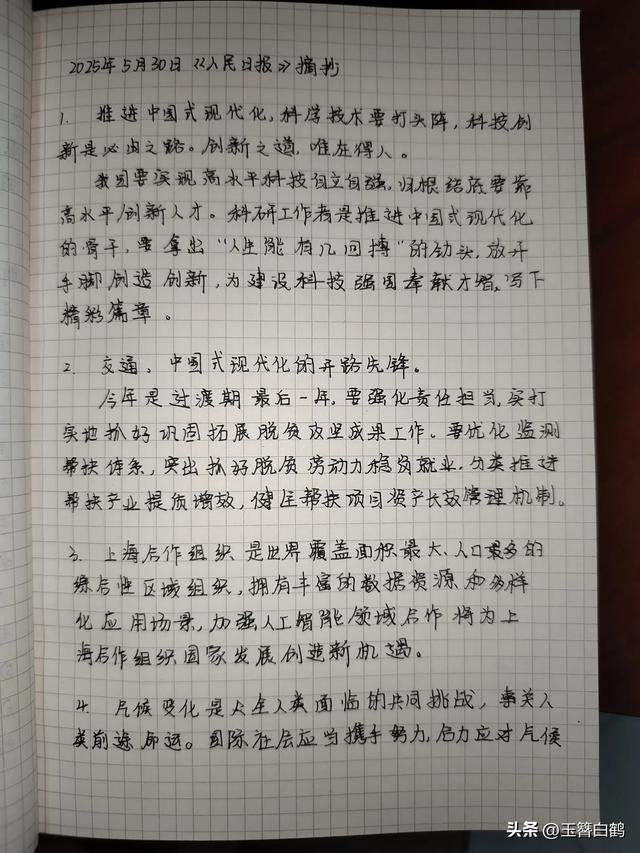 2025年5月30日《人民日报》摘抄
1. 推进中国式现代化,科学技术要打头阵,科技创
新是必由之路。创新之道,唯在得人。
我国要实现高水平科技自立自强,归根结底要靠
高水平创新人才。科研工作者是推进中国式现代化
的骨干,要拿出“人生能有几回搏”的劲头,放开
手脚创造创新,为建设科技强国奉献才智,写下
精彩篇章。
2. 交通,中国式现代化的开路先锋。
今年是过渡期最后一年,要强化责任担当,实打
实地抓好巩固拓展脱贫攻坚成果工作。要优化监测
帮扶体系,突出抓好脱贫劳动力稳岗就业,分类推进
帮扶产业提质增效,健全帮扶项目资产长效管理机制。
3. 上海合作组织是世界覆盖面积最大、人口最多的
综合性区域组织,拥有丰富的数据资源和多样
化应用场景,加强人工智能领域合作将为上
海合作组织国家发展创造新机遇。
4. 气候变化是全人类面临的共同挑战,事关人
类前途命运。国际社会应当携手努力,合力应对气候
头条 @玉簪白鹤